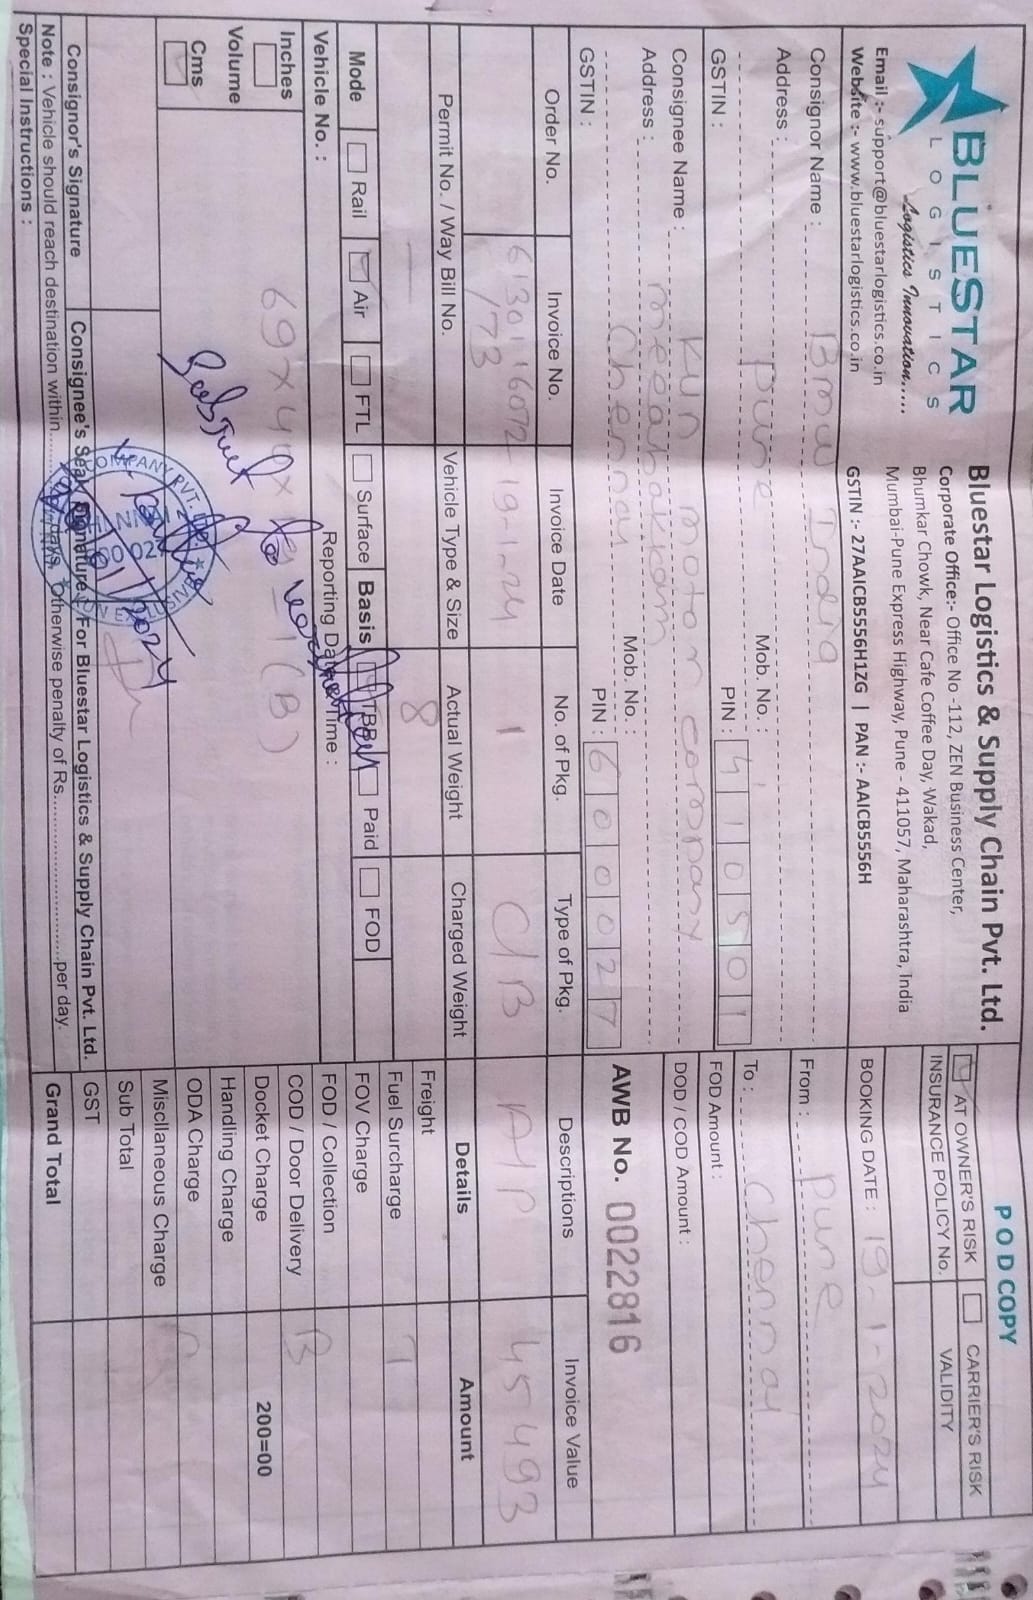 BLUESTAR
LOGISTICS
Logistics Innovation.....
Email :- support@bluestarlogistics.co.in
Website :- www.bluestarlogistics.co.in
Bluestar Logistics & Supply Chain Pvt. Ltd.
Corporate Office:- Office No -112, ZEN Business Center,
Bhumkar Chowk, Near Cafe Coffee Day, Wakad,
Mumbai-Pune Express Highway, Pune - 411057, Maharashtra, India
GSTIN :- 27AAICB5556H1ZG | PAN :- AAICB5556H
POD COPY
AT OWNER'S RISK CARRIER'S RISK
INSURANCE POLICY No. VALIDITY
BOOKING DATE : 19-1-2024
Consignor Name : BMW India
Address : Pune
Mob. No. :
GSTIN : PIN : 410501
From : Pune
To : Chennai
FOD Amount :
DOD / COD Amount :
Consignee Name : Kun motor company
Address : meenabakkam
Chennai Mob. No. :
GSTIN : PIN : 600027
AWB No. 0022816
Order No. Invoice No. Invoice Date No. of Pkg. Type of Pkg. Descriptions Invoice Value
6130116072 19-1-24 1 C/B A/P 45493
/73
Permit No. / Way Bill No. Vehicle Type & Size Actual Weight Charged Weight Details Amount
8
Mode Rail Air FTL Surface Basis TBB Paid FOD
Vehicle No. : Reporting Date & Time :
Inches
Volume
Cms
69x4 1(B)
Subject to verification
Freight
Fuel Surcharge T
FOV Charge
FOD / Collection
COD / Door Delivery B
Docket Charge 200=00
Handling Charge
ODA Charge
Miscllaneous Charge
Sub Total
GST
Grand Total
COMPANY PVT. LTD.
/01/2024
Consignor's Signature Consignee's Seal Signature For Bluestar Logistics & Supply Chain Pvt. Ltd.
Note : Vehicle should reach destination within..........days. Otherwise penalty of Rs..............................per day.
Special Instructions :